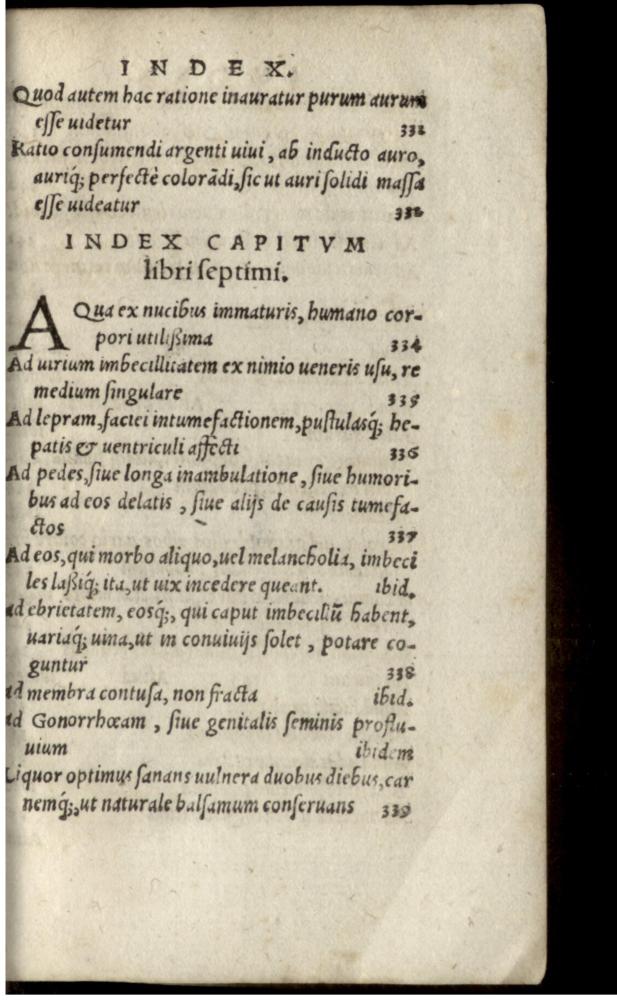 INDEX.
Quod autem hac ratione inauratur purum aurum
esse uidetur 332
Ratio consumendi argenti uiui, ab inducto auro,
auriq́; perfectè colorādi, sic ut auri solidi massa
esse uideatur 332
INDEX CAPITVM
libri septimi.
AQua ex nucibus immaturis, humano cor-
pori utilißima 334
Ad uirium imbecillitatem ex nimio ueneris usu, re
medium singulare 335
Ad lepram, faciei intumefactionem, pustulasq́; he-
patis & uentriculi affecti 336
Ad pedes, siue longa inambulatione, siue humori-
bus ad eos delatis, siue alijs de causis tumefa-
ctos 337
Ad eos, qui morbo aliquo, uel melancholia, imbeci
les laßiq́; ita, ut uix incedere queant. ibid.
ad ebrietatem, eosq́;, qui caput imbecillū habent,
uariaq́; uina, ut in conuiuijs solet, potare co-
guntur 338
ad membra contusa, non fracta ibid.
ad Gonorrhœam, siue genitalis seminis proflu-
uium ibidem
Liquor optimus sanans uulnera duobus diebus, car
nemq́;, ut naturale balsamum conseruans 339